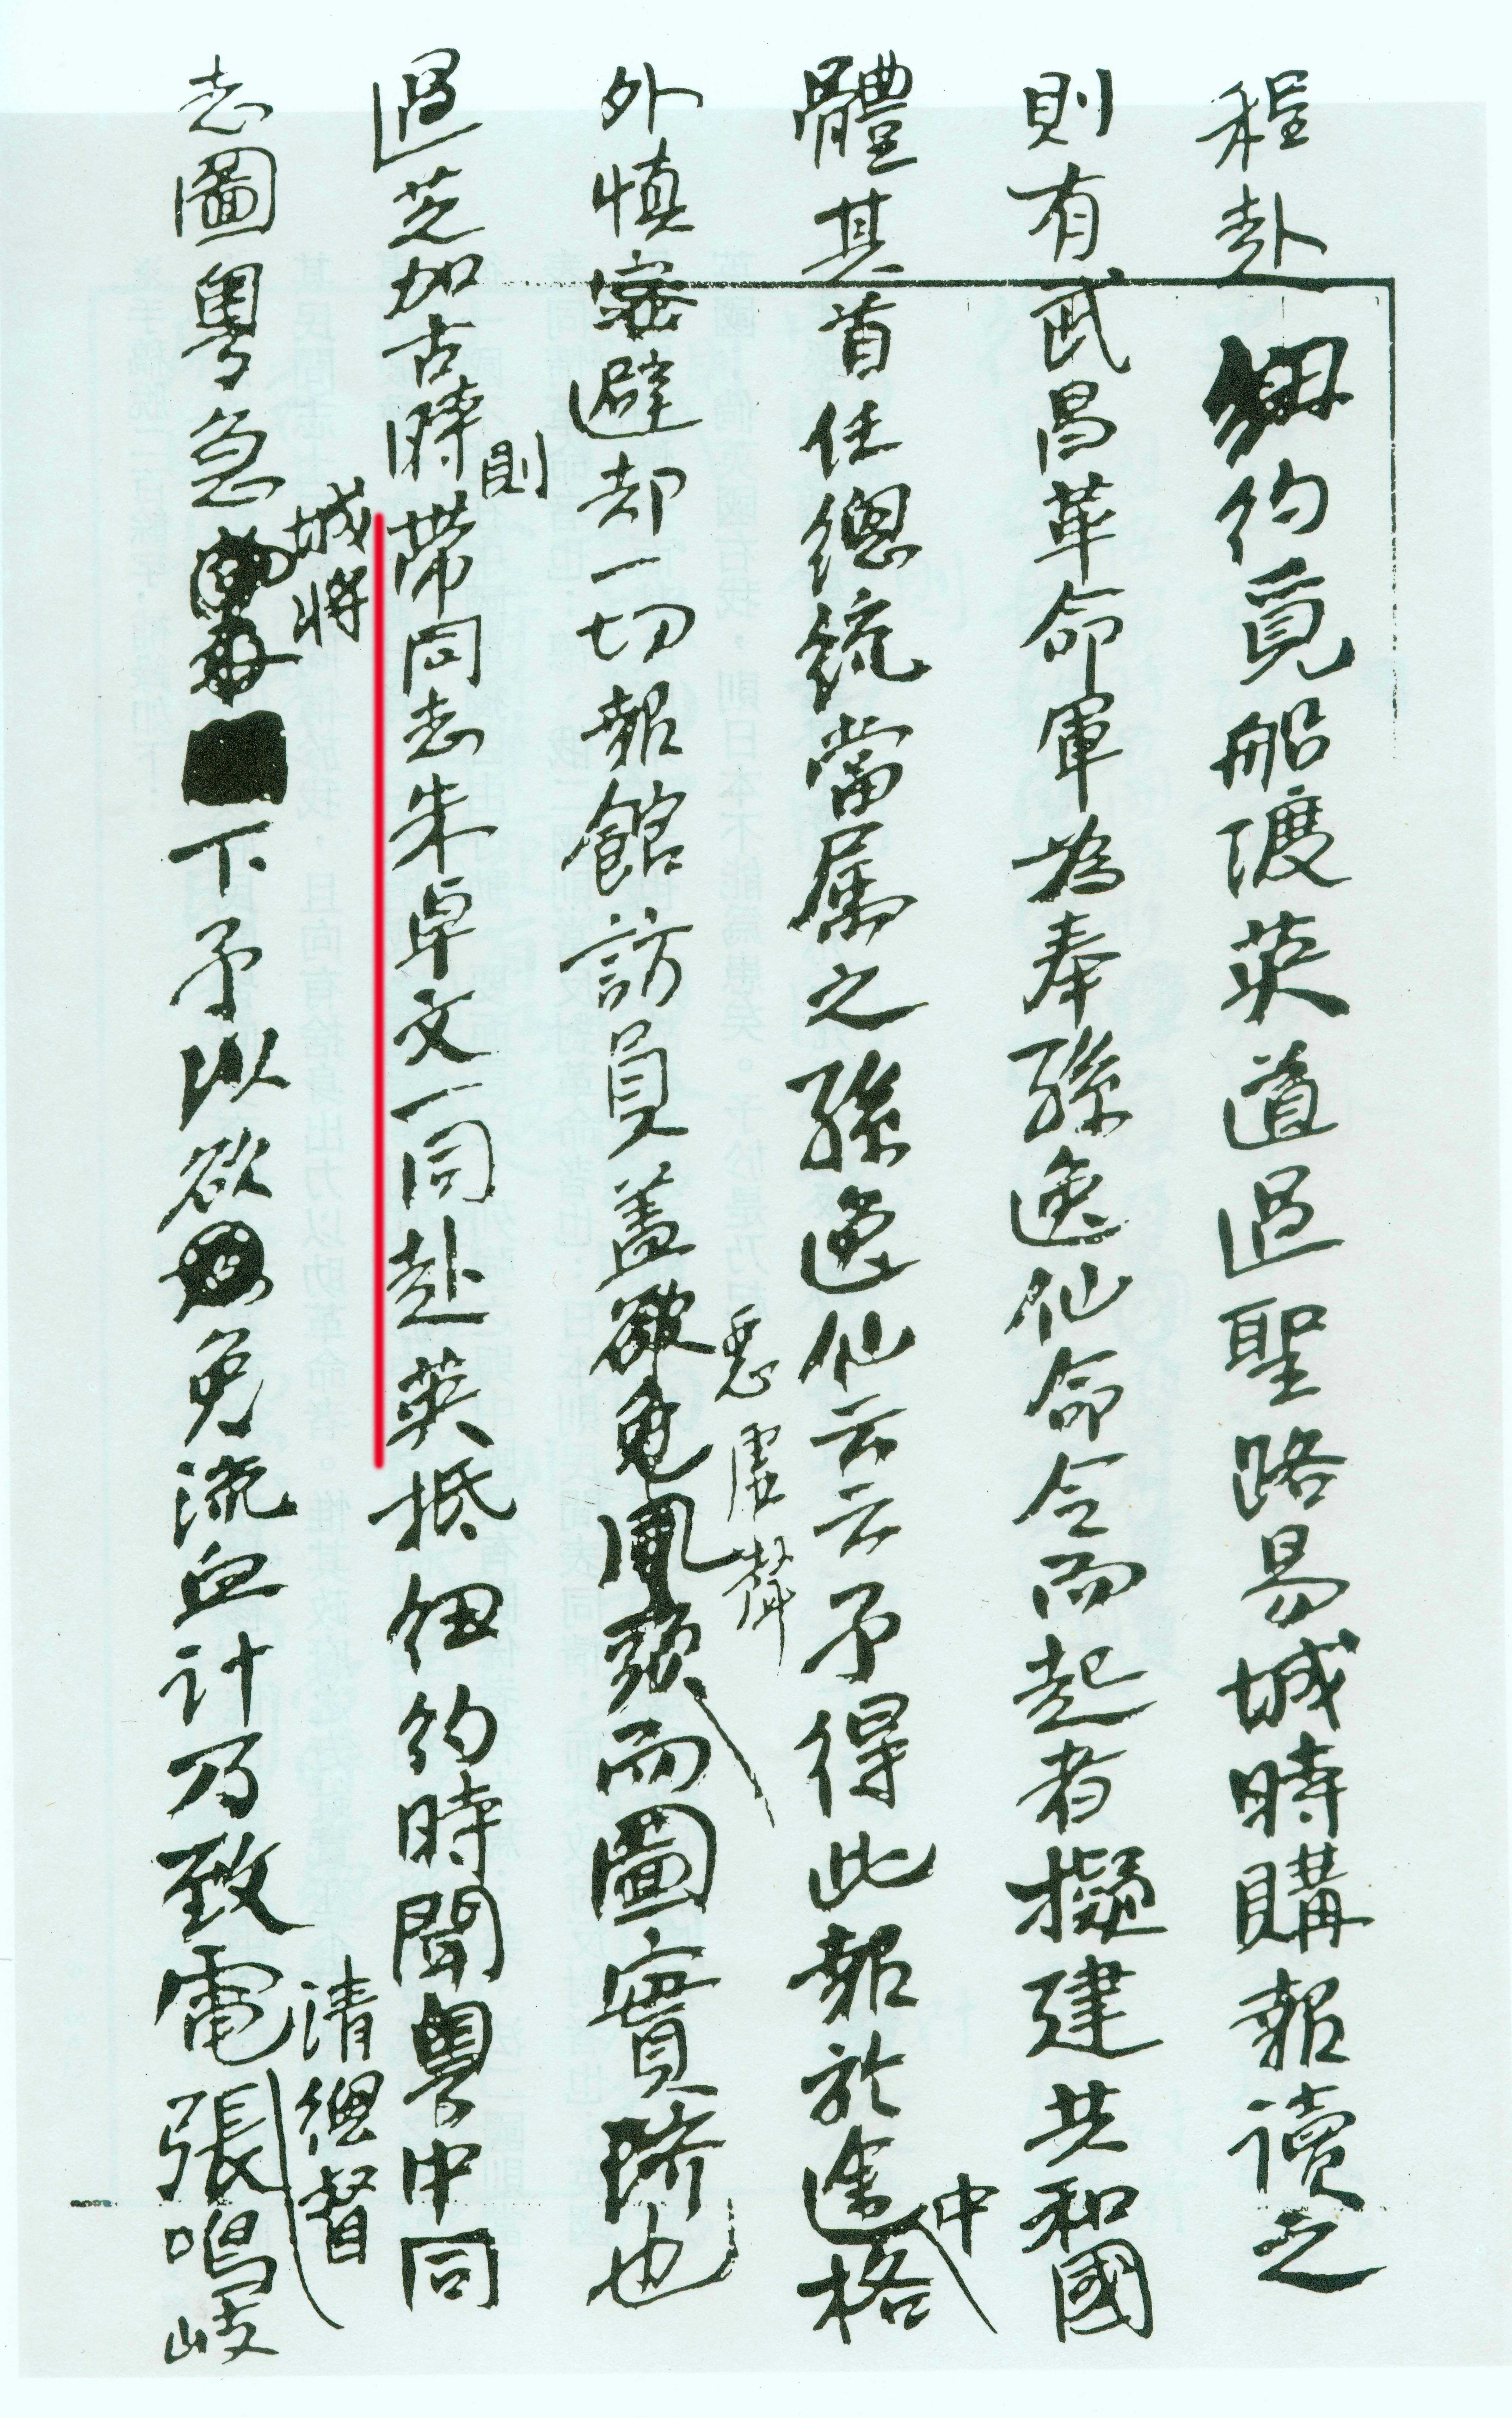 程赴紐約覓船渡英道過聖路易城時購報讀之
則有武昌革命軍為奉孫逸仙命令而起者擬建共和國
體其首任總統當属之孫逸仙云云予得此報於途中格
外慎密避却一切報館訪員蓋惡虛聲而圖實際也
過芝加古時則帶同志朱卓文一同赴英抵紐約時聞粵中同
志圖粵急城將下予以欲免流血計乃致電清總督張鳴岐